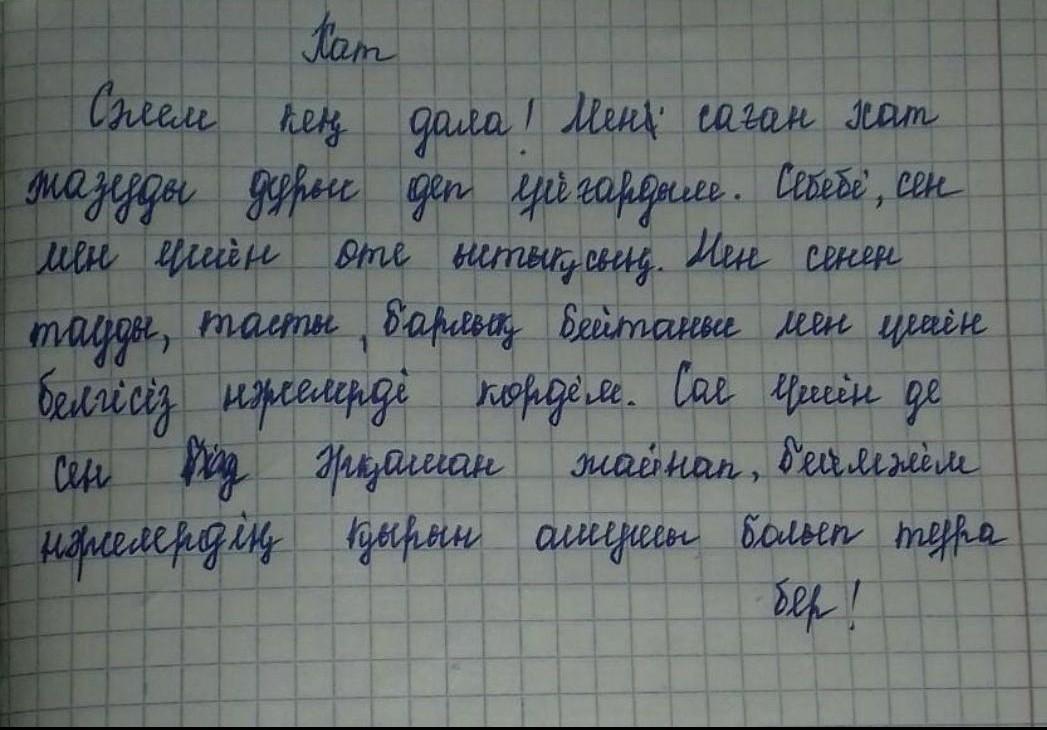 Хат
Сәлем кең дала! Мен саған хат
жазуды дұрыс деп ұйғардым. Себебі, сен
мен үшін өте ыстықсың. Мен сенен
тауды, тасты, барлық бейтаныс мен үшін
белгісіз нәрселерді көрдім. Сол үшін де
сен әрқашан жайнап, беймәлім
нәрселердің қырын ашушы болып тұра
бер!